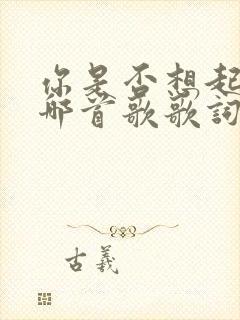 你是否想起
那首歌歌詞
古義